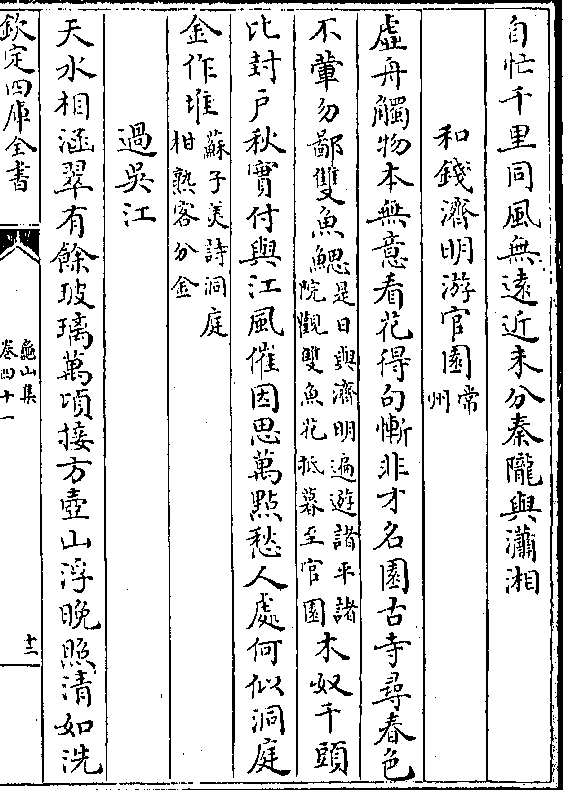 自忙千里同風無遠近未分秦隴與瀟湘
和錢濟明游官園常州
虛舟觸物本無意看花得句慚非才名園古寺尋春色
不葷勿鄙雙魚鰓是日與濟明遍遊諸平諸院觀雙魚花抵暮至官園木奴千頭
比封戶秋實付與江風催因思萬點愁人處何似洞庭
金作堆蘇子美詩洞庭柑熟客分金
過吳江
天水相涵翠有餘玻璃萬頃接方壺山浮晚照清如洗
欽定四庫全書
龜山集
卷四十一
十二